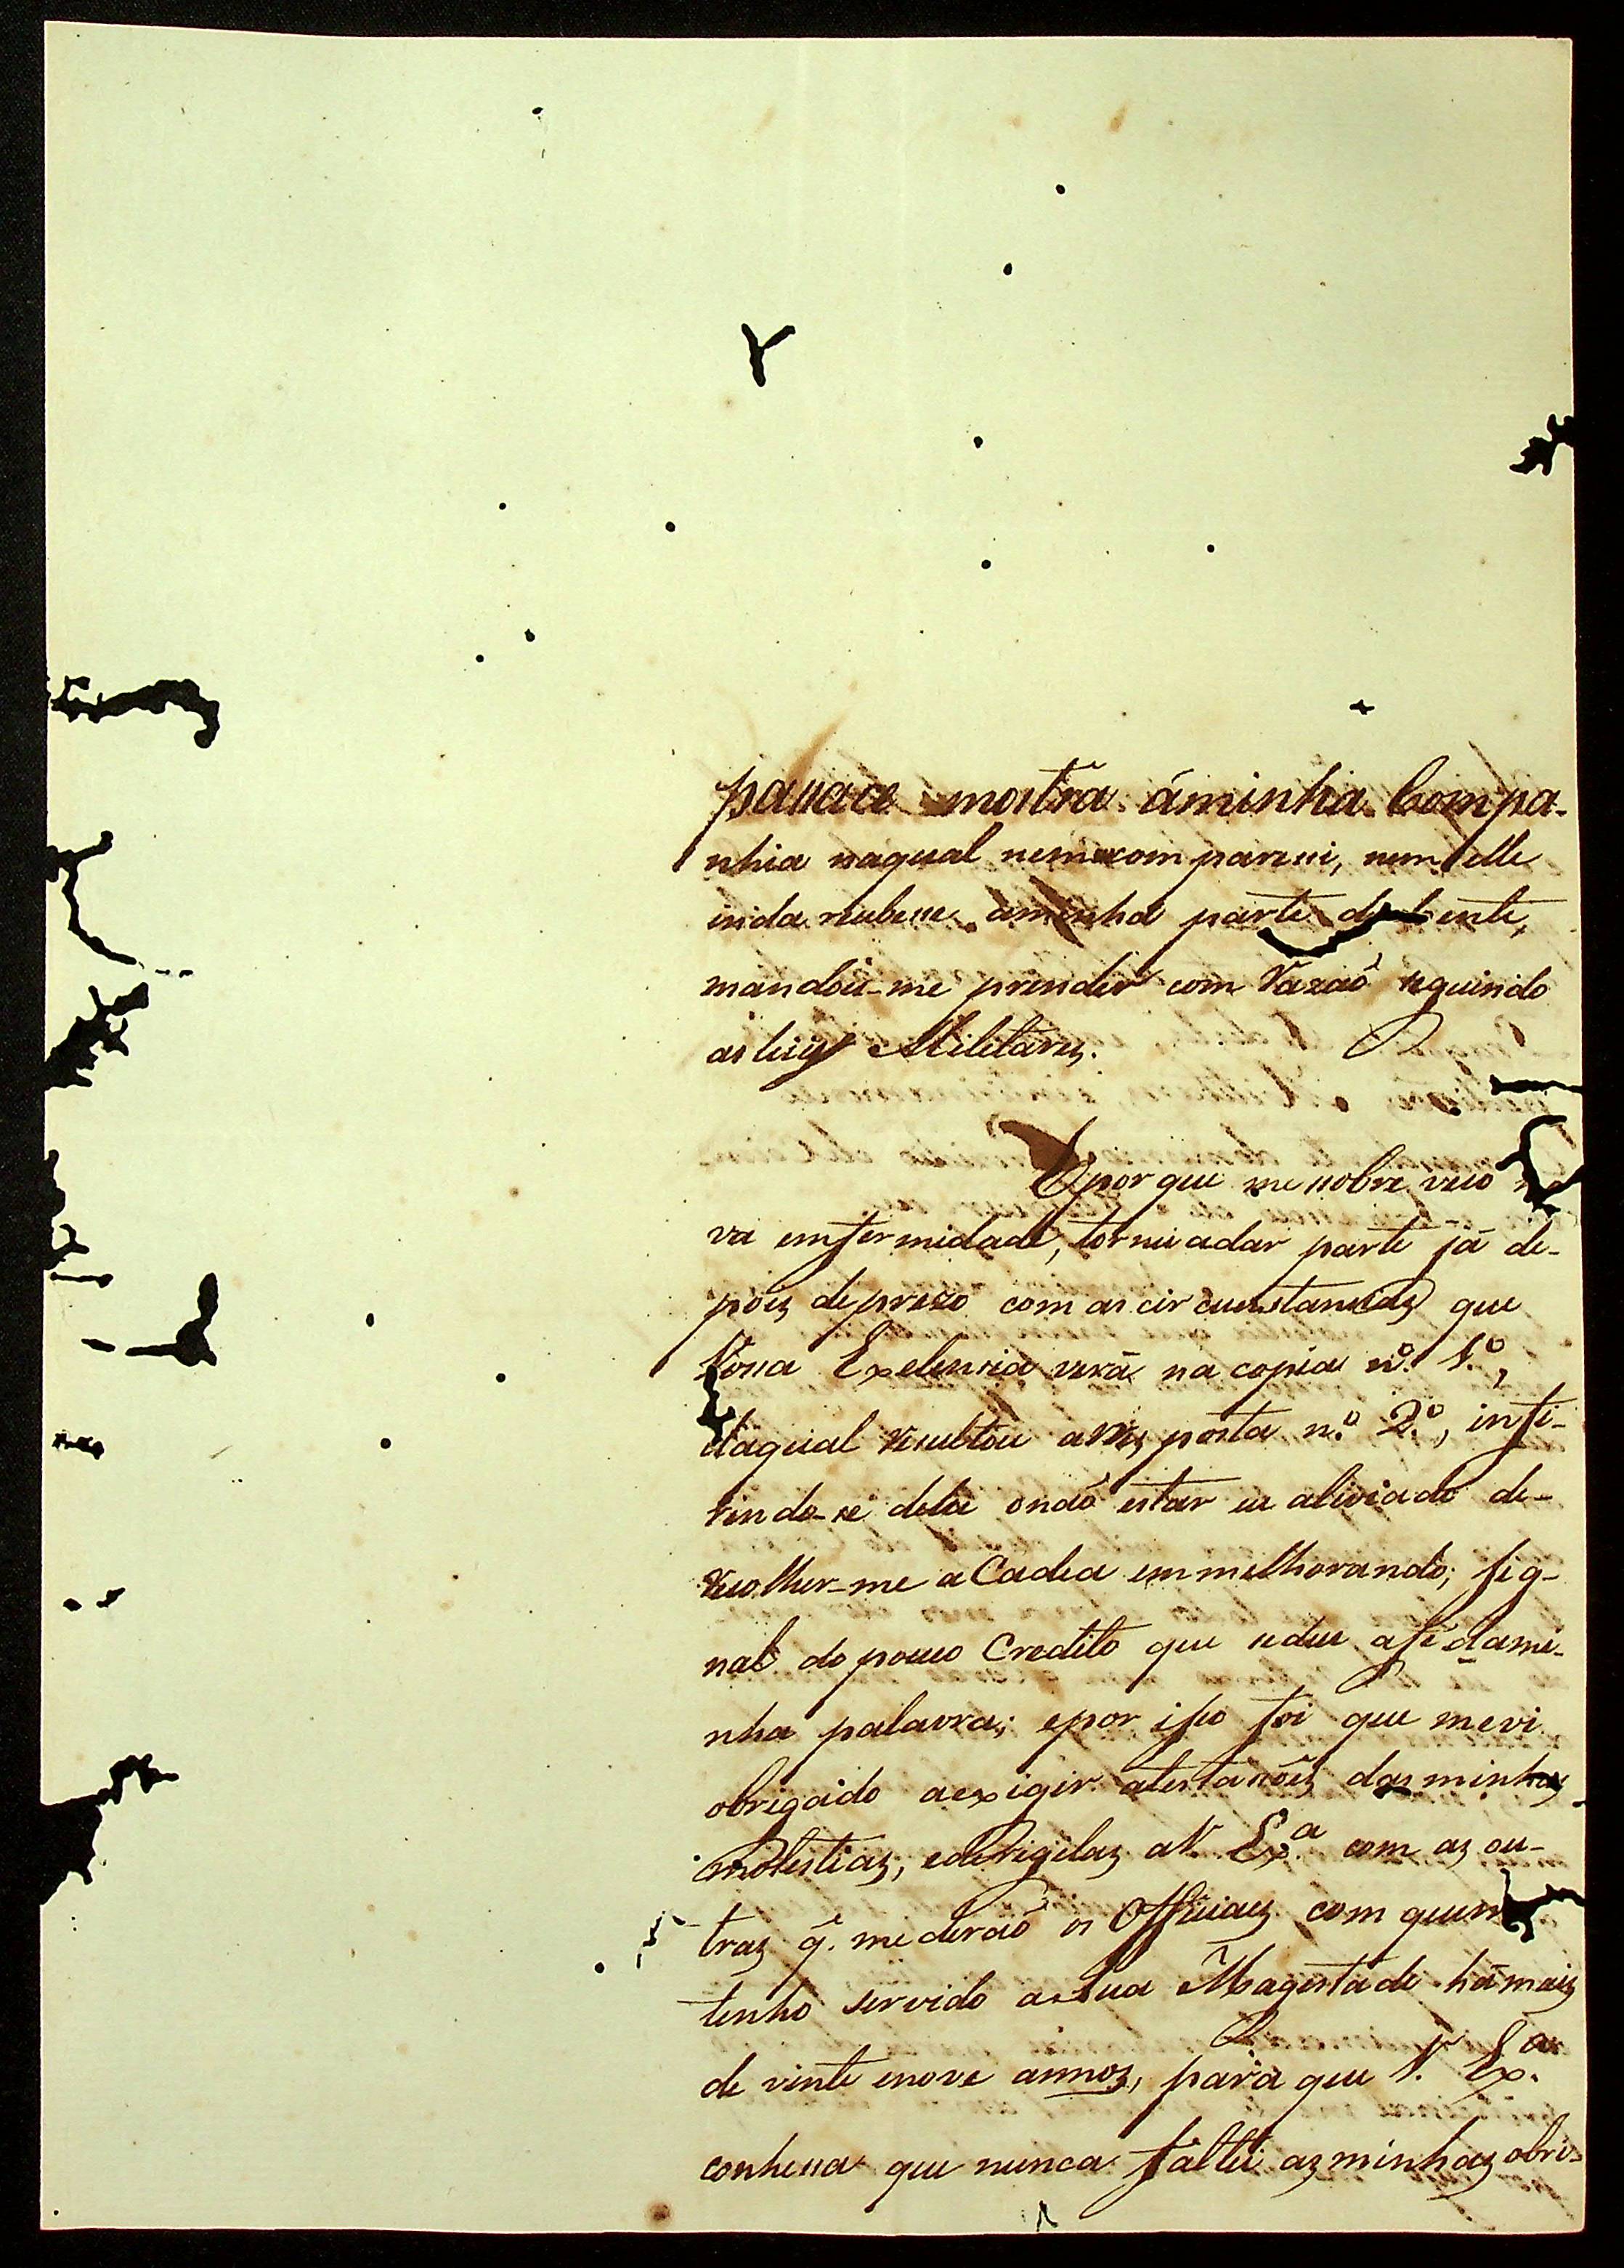 passace mostra áminha Compa-
nhia naqual nem com pareci, nem elle
inda recebece aminha parte de ente,
mandou-me prender com Razaõ seguindo
as leiz Militarez.
Eporque me sobre veio no
va emfermidade, tornei adar parte já de-
poiz deprezo com as circunstanciaz que
Vossa Exelencia verá na copia nº. 1º.,
daqual Resultou aResposta nº. 2º., infi-
rindo-se dela onaõ estar eu aliviado de-
Recolher-me aCadea emmelhorando; sig-
nal do pouco Credito que sedeu afé dami-
nha palavra; epor isso foi que mevi
obrigado aexigir atestacõez das minhas
molestiaz; ederigilaz aV. Ex.ª com az ou-
traz q̃. me deraõ os Officiaez com quem
tenho servido aSua Magestade hámaiz
de vinte enove annoz, para que V. Ex.ª
conhessa que nunca faltei az minhaz obri-